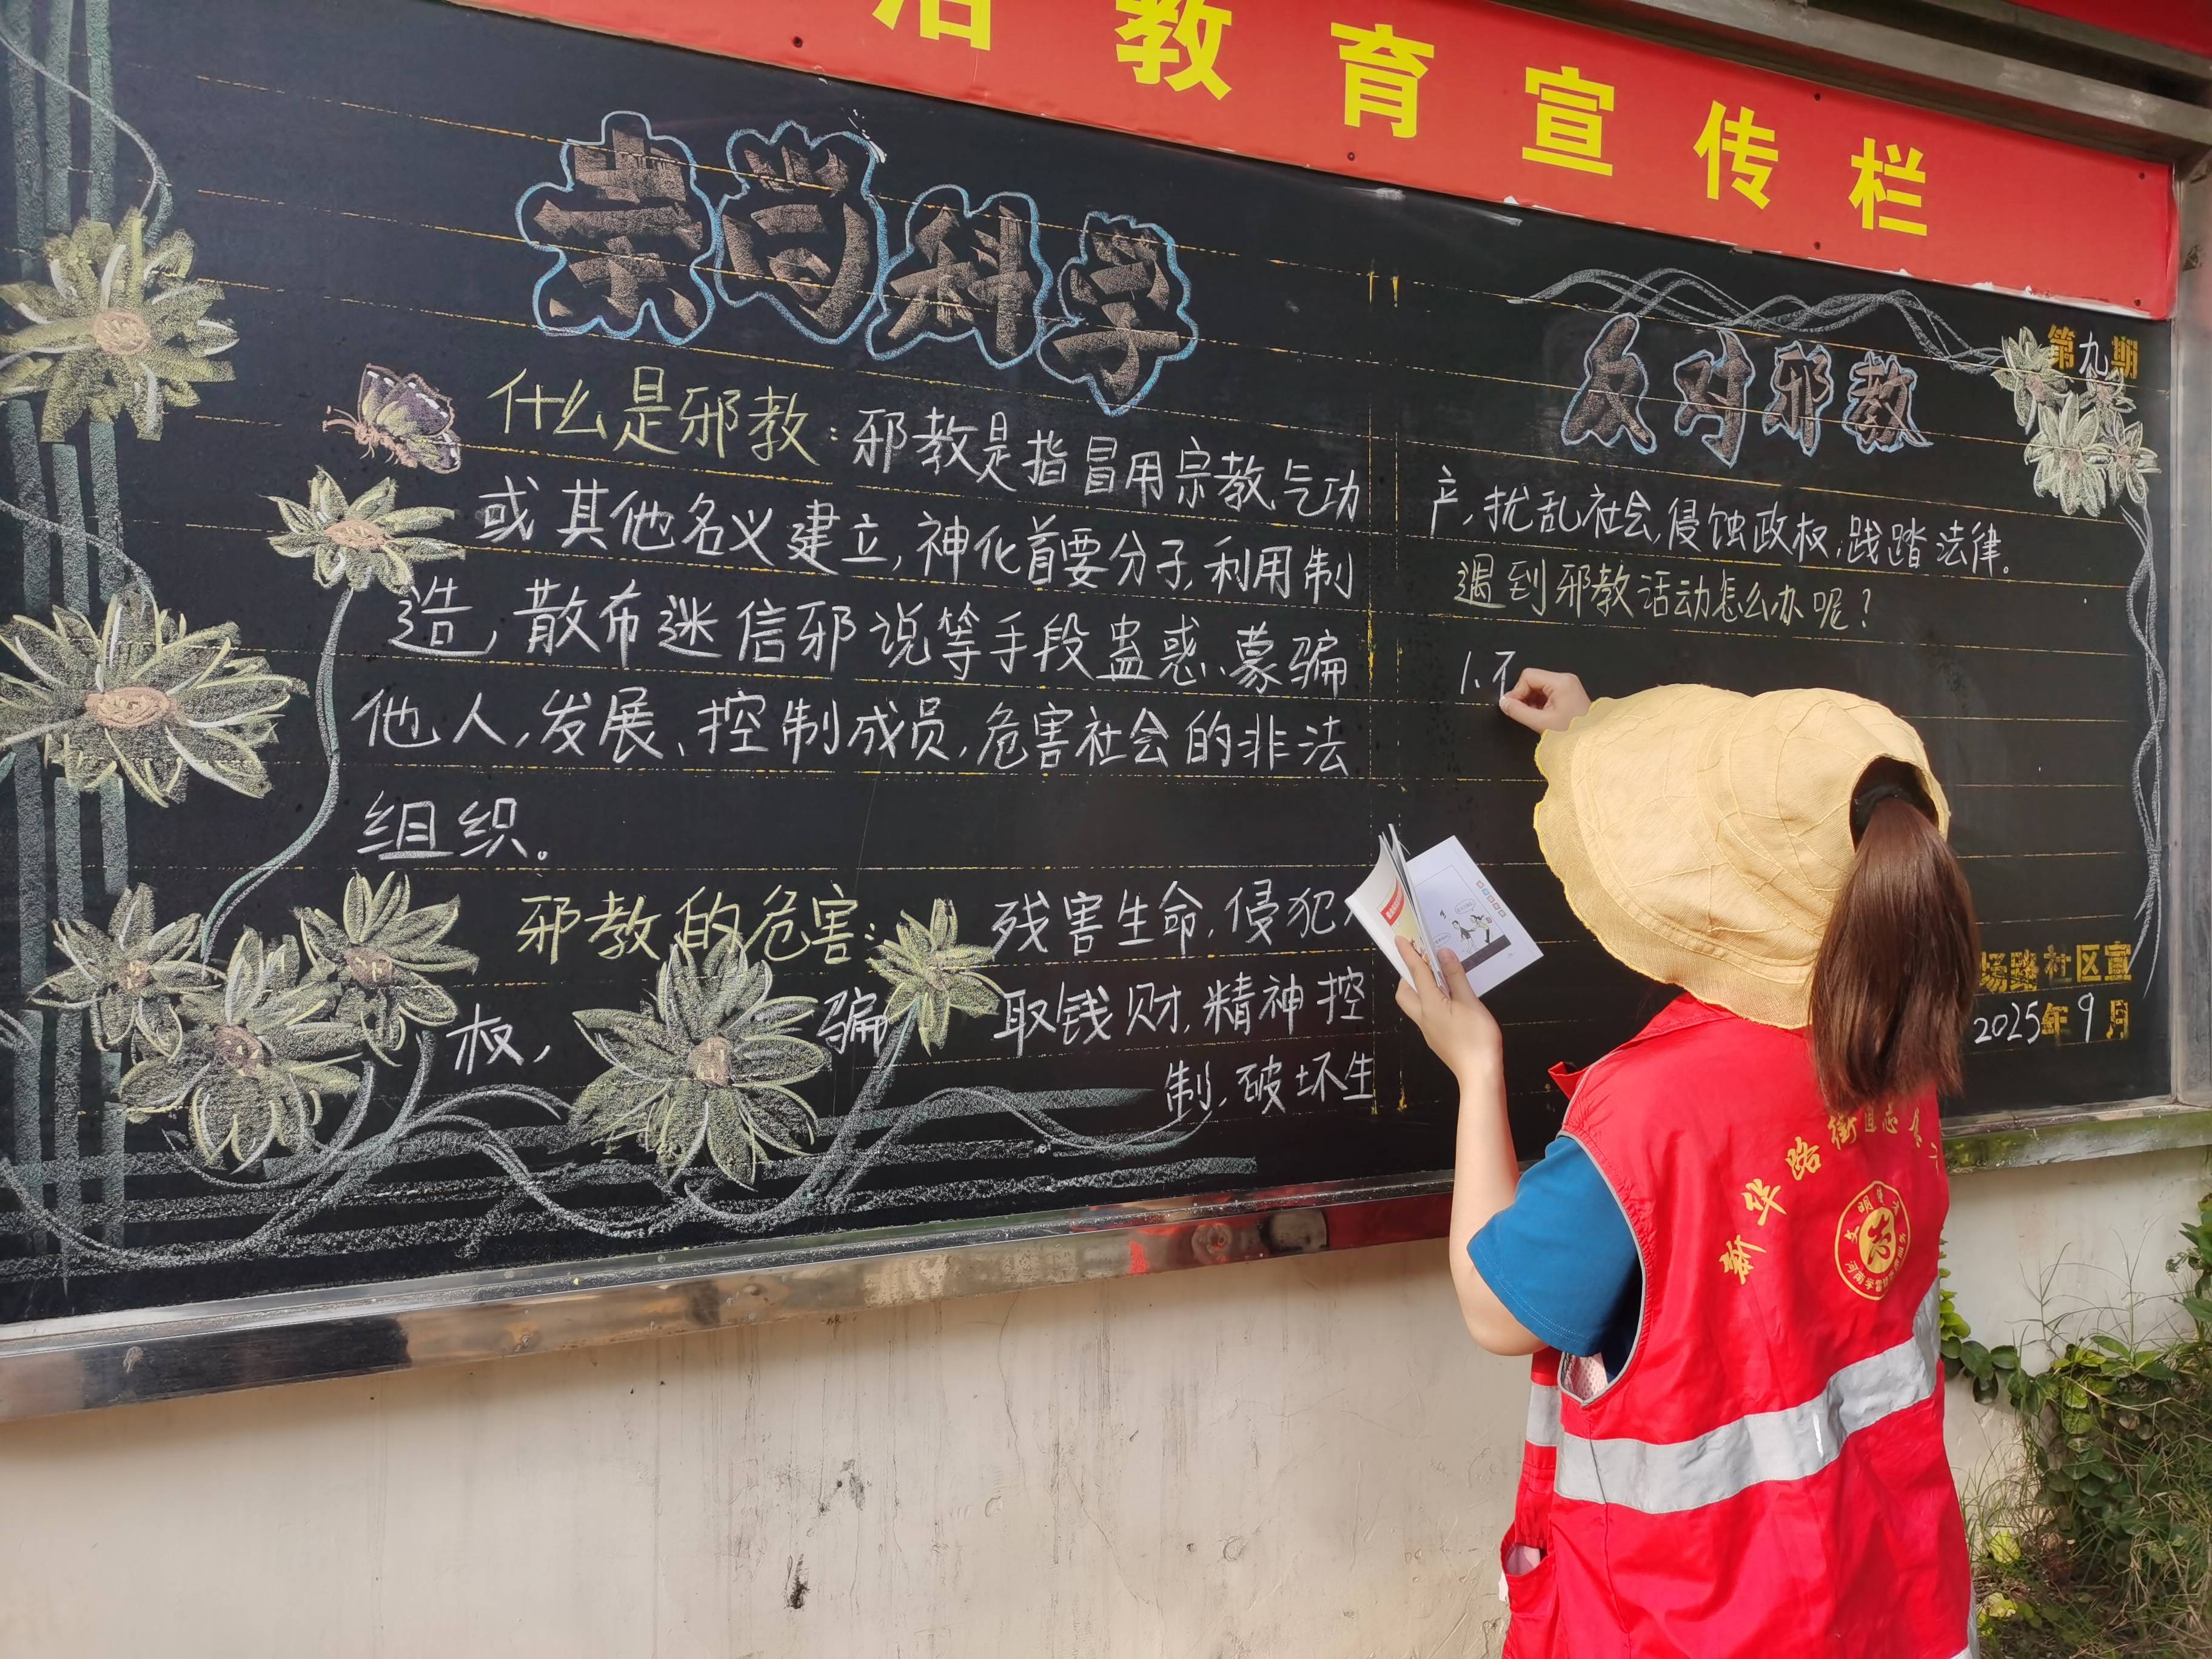 治教育宣传栏
崇尚科学
什么是邪教：邪教是指冒用宗教、气功
或其他名义建立，神化首要分子，利用制
造，散布迷信邪说等手段蛊惑、蒙骗
他人，发展、控制成员，危害社会的非法
组织。
邪教的危害：残害生命，侵犯人
权，骗取钱财，精神控
制，破坏生
反对邪教
第九期
产，扰乱社会，侵蚀政权，践踏法律。
遇到邪教活动怎么办呢？
1、不
场路社区宣
2025年9月
新华路街道志
文明